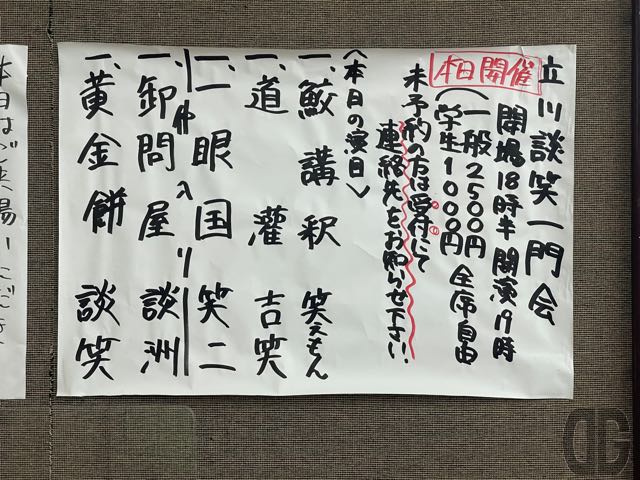 立川談笑一門会
本日開催
開場18時半 開演19時
(一般2500円 全席自由
学生1000円)
未予約の方は受付にて
連絡先をお知らせ下さい。
〈本日の演目〉
一、鮫講釈 笑えもん
一、道灌 吉笑
一、一眼国 笑二
仲入り
一、卸問屋 談洲
一、黄金餅 談笑
本日はご来場いただき
DG